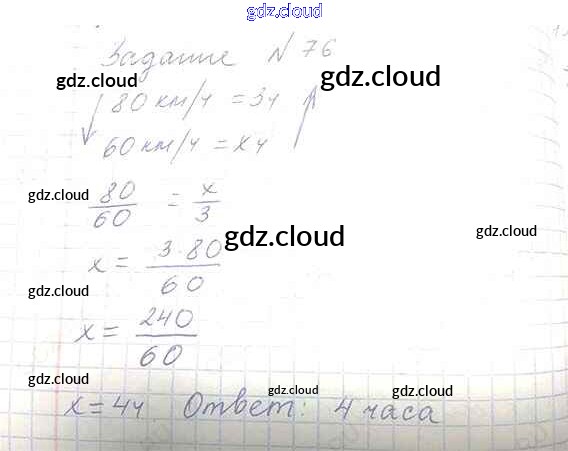 gdz.cloud
Задание №76
gdz.cloud
gdz.cloud
↓ 80 км/ч = 3ч ↑
60 км/ч = x ч
gdz.cloud
80/60 = x/3
gdz.cloud
gdz.cloud
x = 3·80/60
gdz.cloud
x = 240/60
gdz.cloud
gdz.cloud
gdz.cloud
x = 4ч Ответ: 4 часа